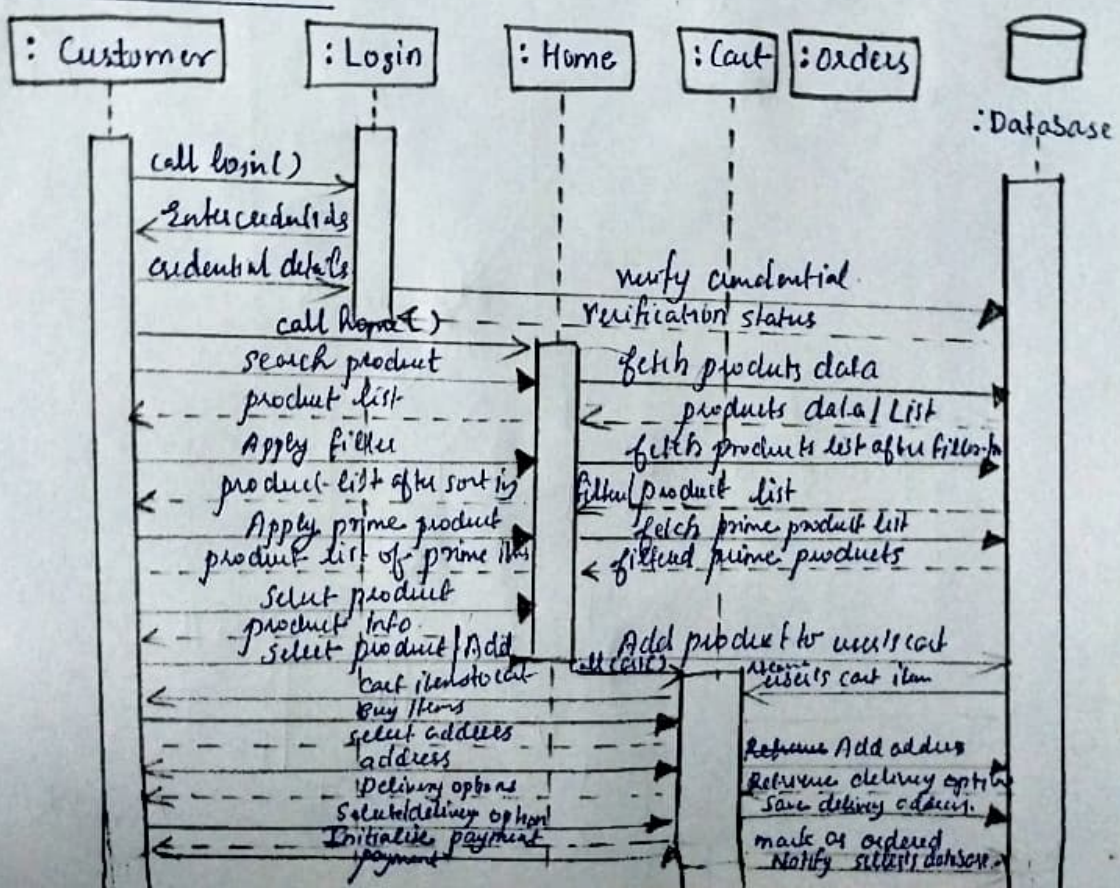 : Customer
: Login
: Home
: Cart
: Orders
: Database
call login()
Enter credentials
credential details
verify credential
verification status
call home()
search product
fetch products data
product list
products data/List
Apply filter
fetch products list after filter
product list after sorting
filtered product list
Apply prime product
fetch prime product list
product list of prime items
filtered prime products
select product
product info
select product/Add
Add product to user's cart
call cart()
user's cart item
cart items to cart
Buy Items
select address
address
Add address
Delivery options
Retrieve delivery option
Save delivery address.
Select delivery option
Initialise payment
payment
mark as ordered
Notify seller's database.